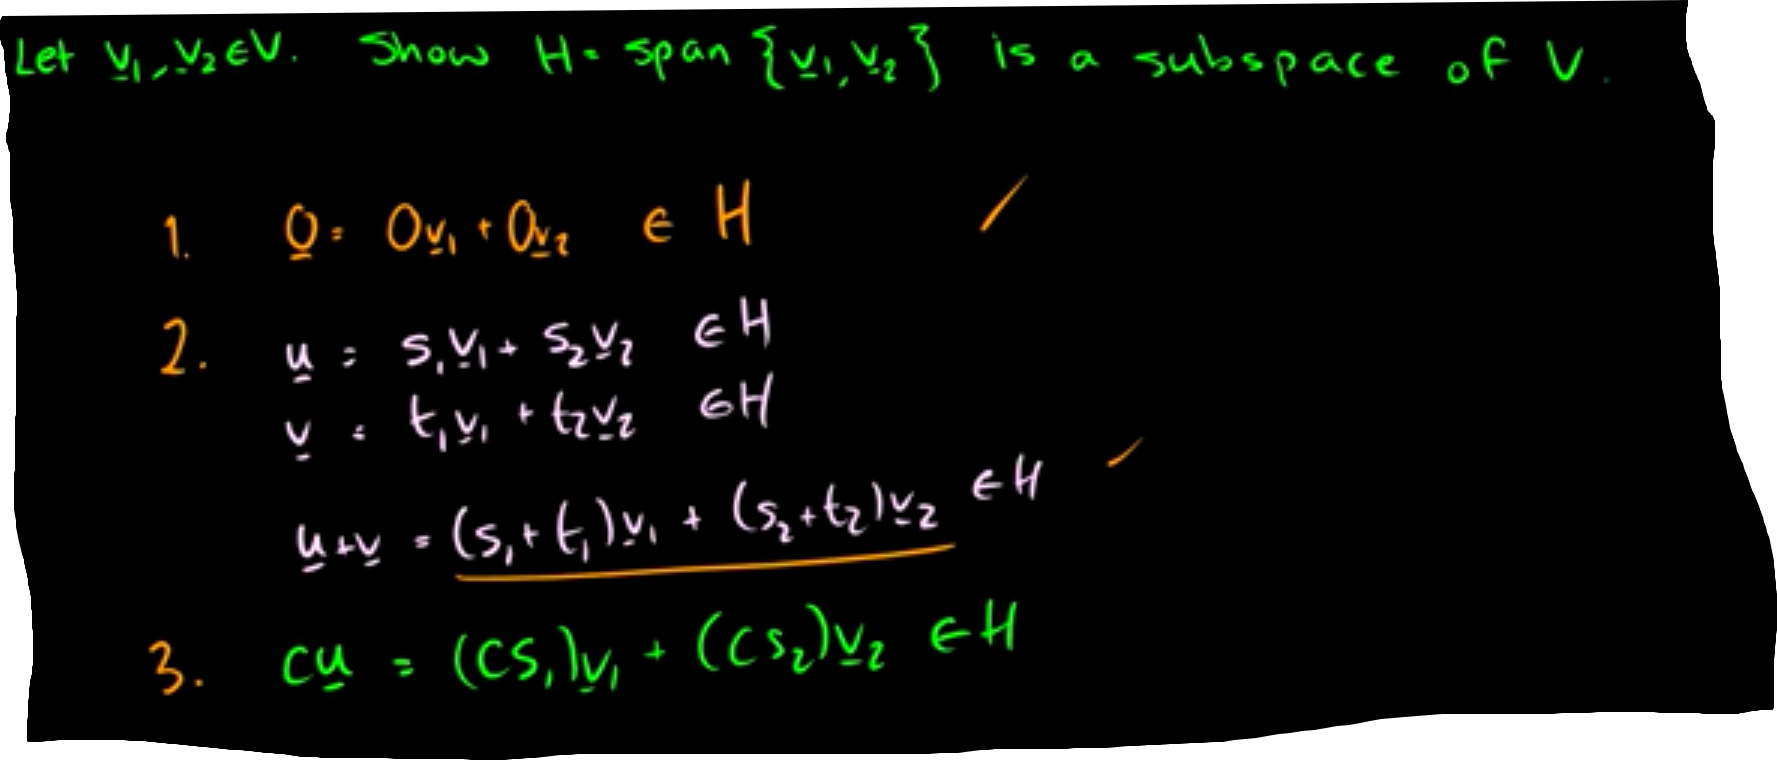 Let v₁, v₂ ∈ V. Show H = span {v₁, v₂} is a subspace of V.
1. 0 = 0v₁ + 0v₂ ∈ H
2. u = s₁v₁ + s₂v₂ ∈ H
v = t₁v₁ + t₂v₂ ∈ H
u+v = (s₁+t₁)v₁ + (s₂+t₂)v₂ ∈ H
3. cu = (cs₁)v₁ + (cs₂)v₂ ∈ H